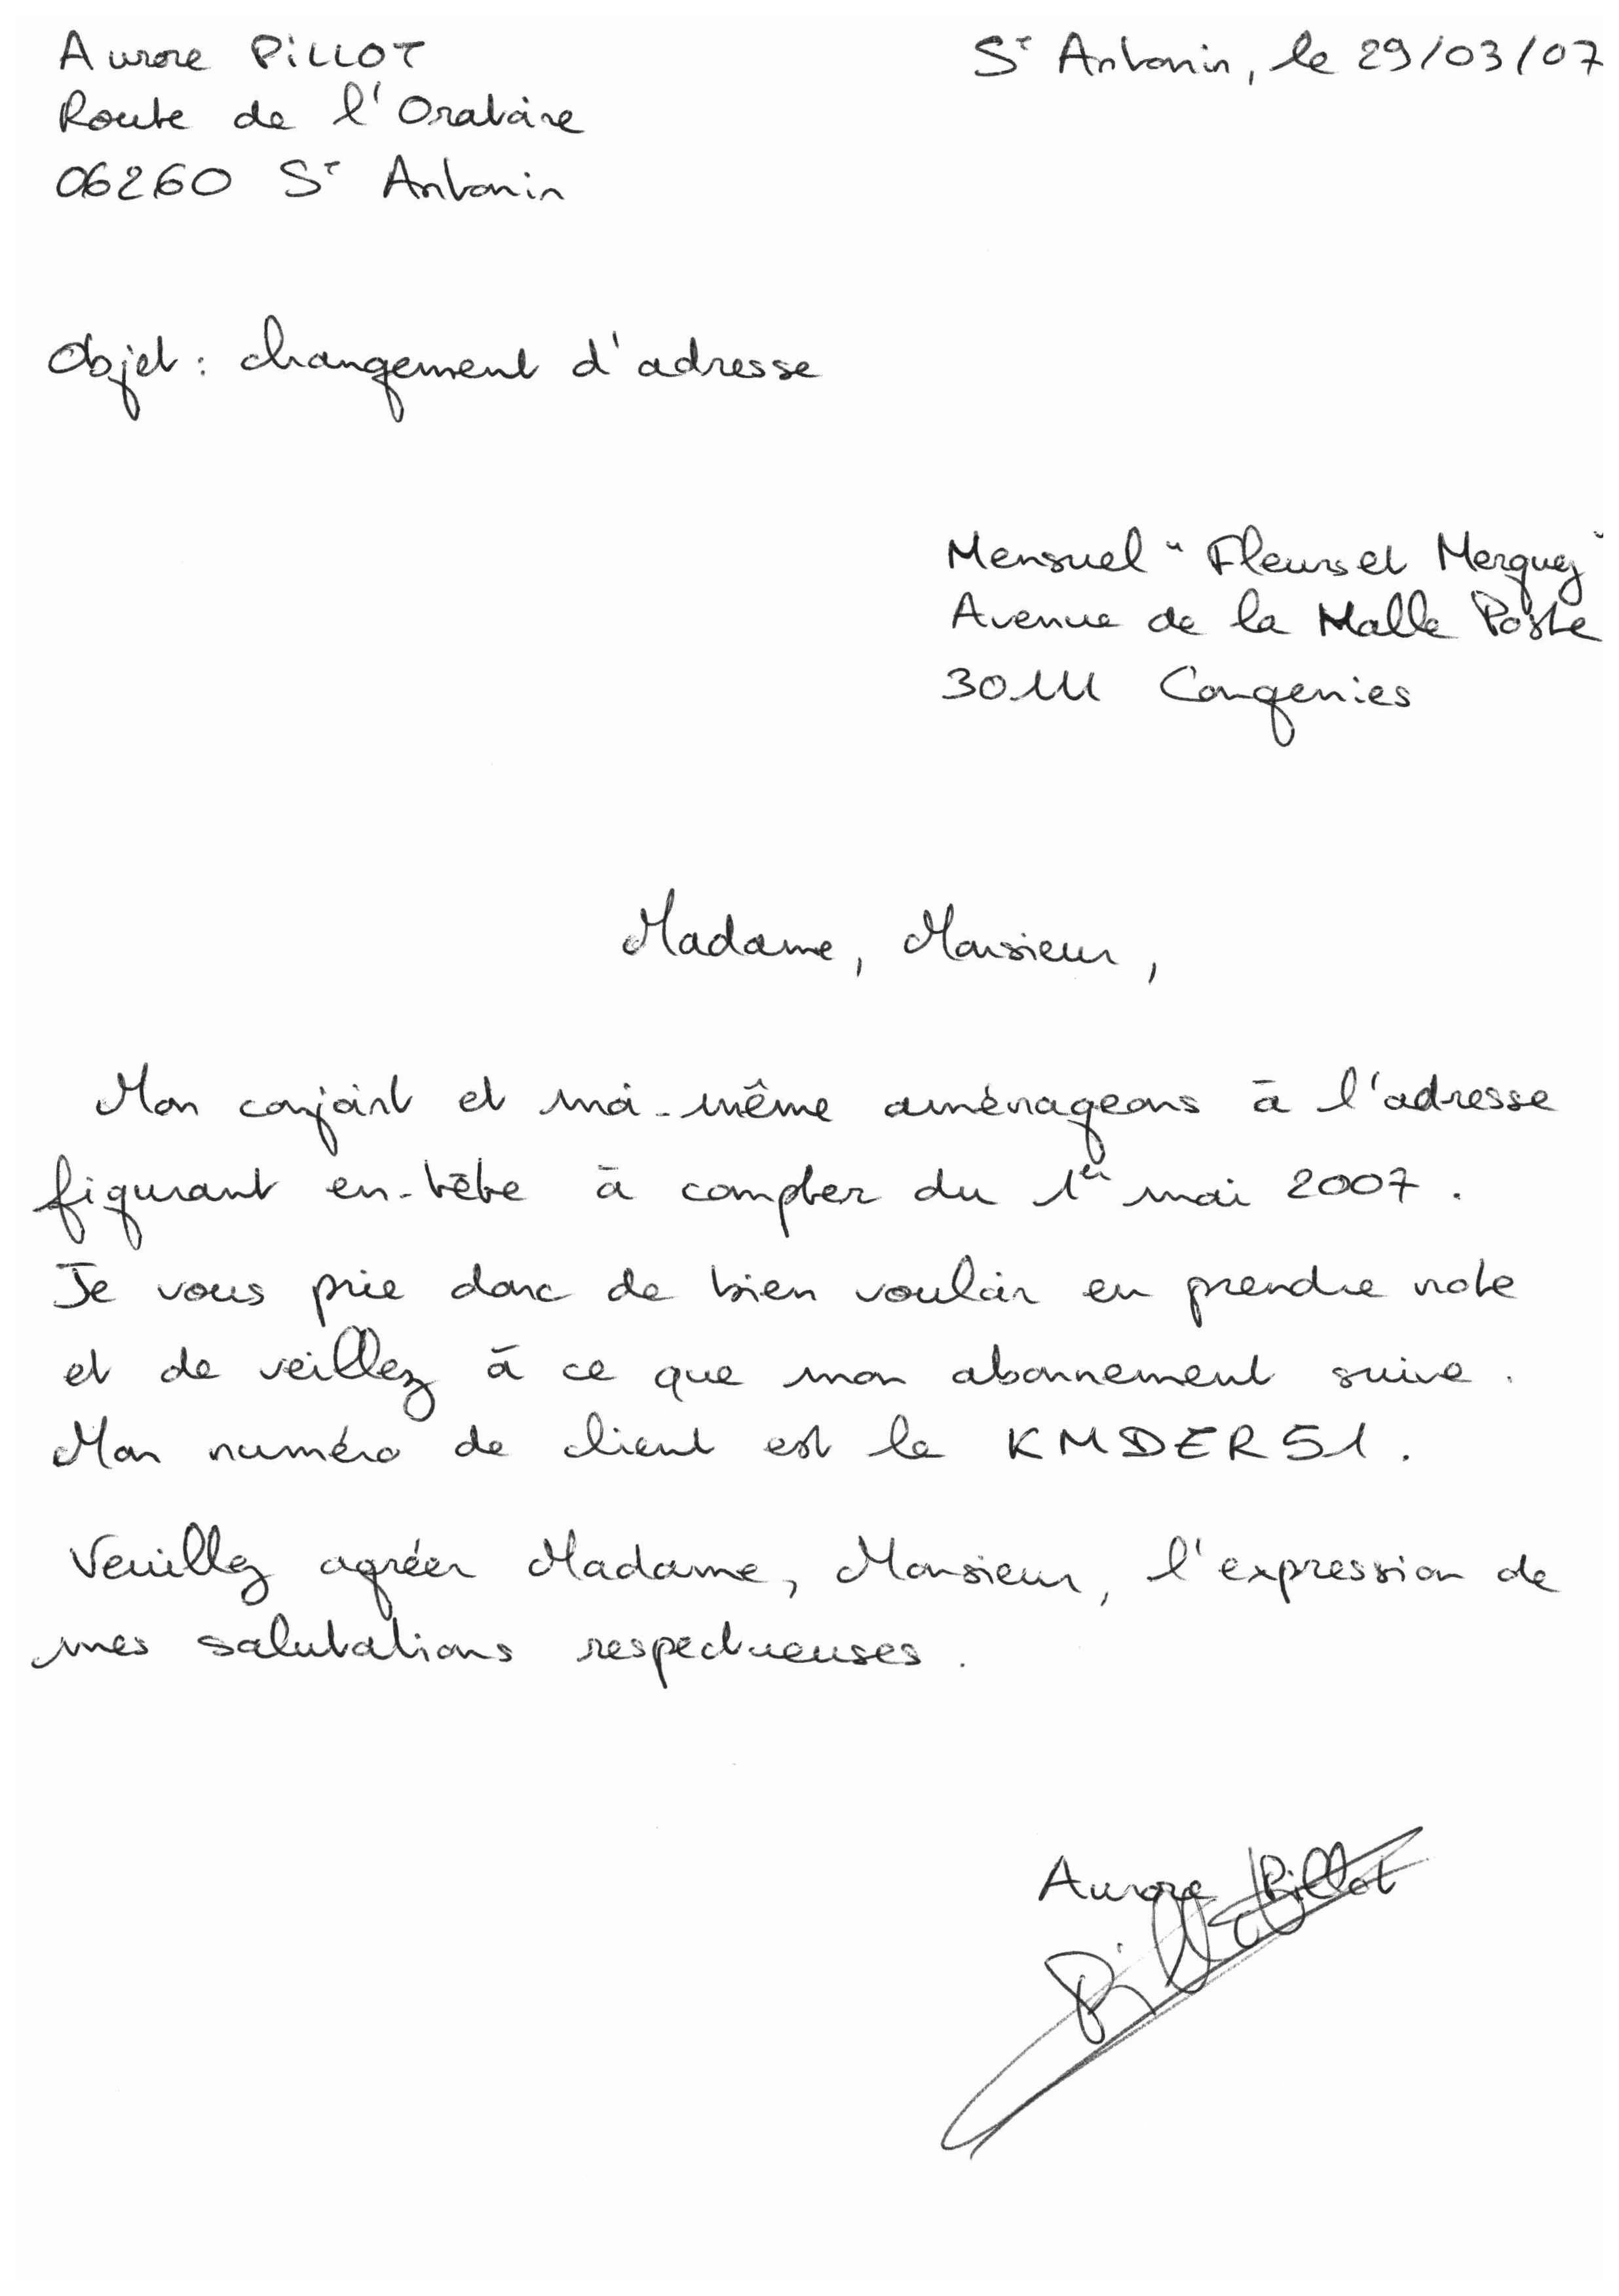 Aurore PiLLOT
St Antonin, le 29/03/07
Route de l'Oratoire
06260 St Antonin
Objet : changement d'adresse
Mensuel "Fleurs et Merguez"
Avenue de la Malle Poste
30111 Congenies
Madame, Monsieur,
Mon conjoint et moi-même aménageons à l'adresse
figurant en-tête à compter du 1er mai 2007.
Je vous prie donc de bien vouloir en prendre note
et de veillez à ce que mon abonnement suive.
Mon numéro de client est le KMDER51.
Veuillez agréer Madame, Monsieur, l'expression de
mes salutations respectueuses.
Aurore Pillot
Pillot